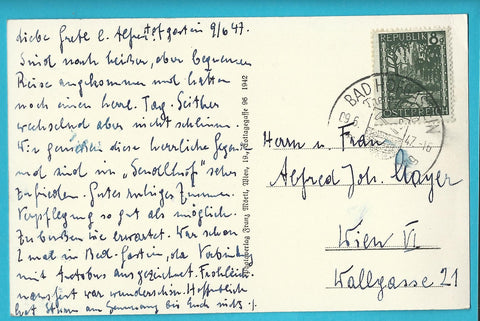 Liebe Grete u. Alfred! Hofgastein 9/6 47.
Sind nach heißer, aber bequemer
Reise angekommen und hatten
noch einen herrl. Tag. Seither
wechselnd aber nicht schlimm.
Wir genießen diese herrliche Gegend
und sind im "Sendlhof" sehr
zufrieden. Gutes ruhiges Zimmer.
Verpflegung so gut als möglich.
Zubußen wie erwartet. War schon
2 mal in Bad Gastein, da Verbindg
mit Autobus ausgezeichnet. Frohleich-
namsfest war wunderschön. Hoffentlich
hat Sturm am Samstag bei Euch nicht
REPUBLIK
8
ÖSTERREICH
BAD HOFGASTEIN
09.6.47-16
Herrn u. Frau
Alfred Joh. Mayer
Wien VI
Wallgasse 21
Wien 19, 96 1942